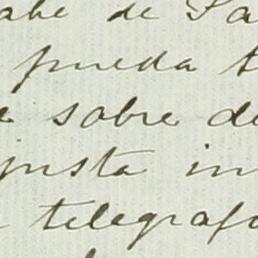 abe de Sa
pueda t
e sobre de
justa in
telegrafo